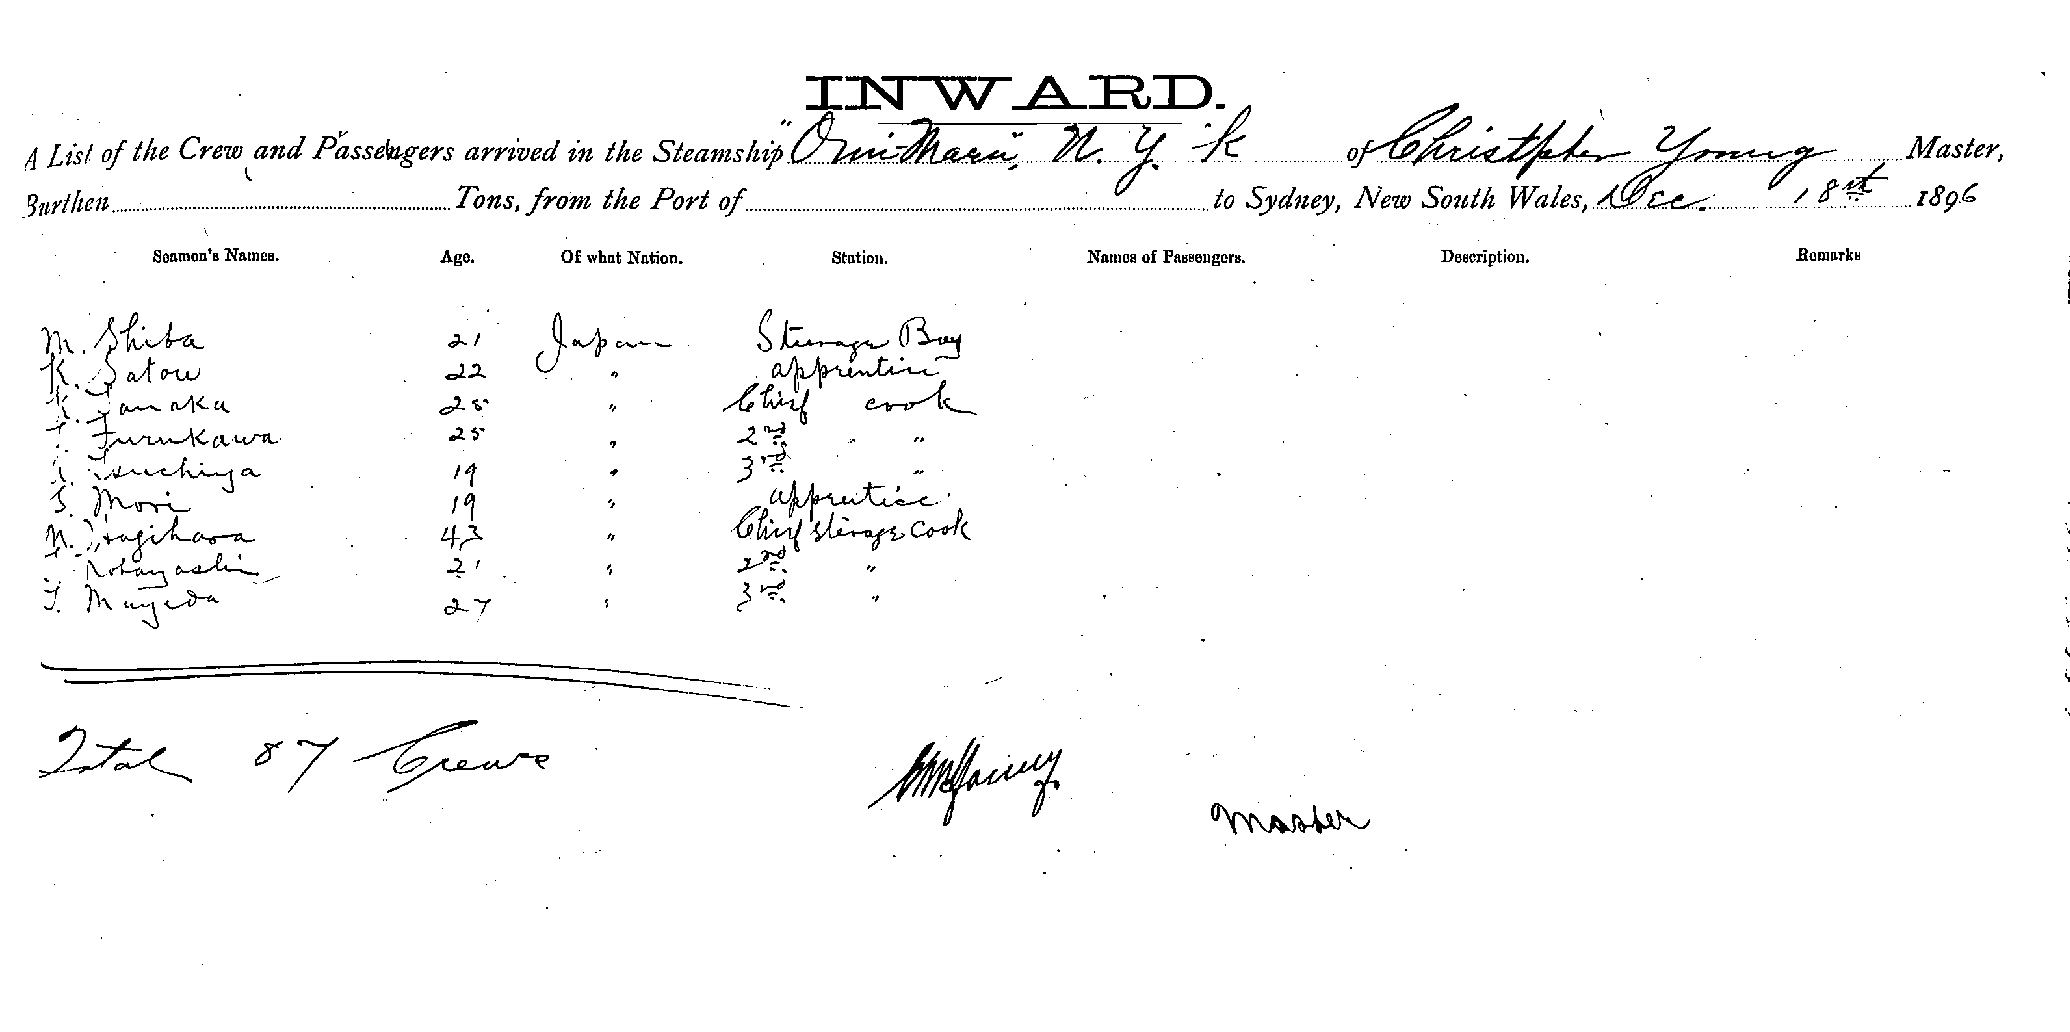 INWARD.
A List of the Crew and Passengers arrived in the Steamship "Omi Maru", N. Y. K of Christpher Young Master,
Burthen Tons, from the Port of to Sydney, New South Wales, Dec. 18st 1896
Seamen's Names. Age. Of what Nation. Station. Names of Passengers. Description. Remarks
M. Shiba 21 Japan Steerage Boy
K. Satow 22 " apprentice
K. Tanaka 25 " Chief cook
T. Furukawa 25 " 2nd " "
Tsuchiya 19 " 3rd "
S. Mori 19 " apprentice
N. 43 " Chief sterage cook
Kobayashi 21 " 2nd "
T. Mayeda 27 " 3rd "
Total 87 Crews
Master